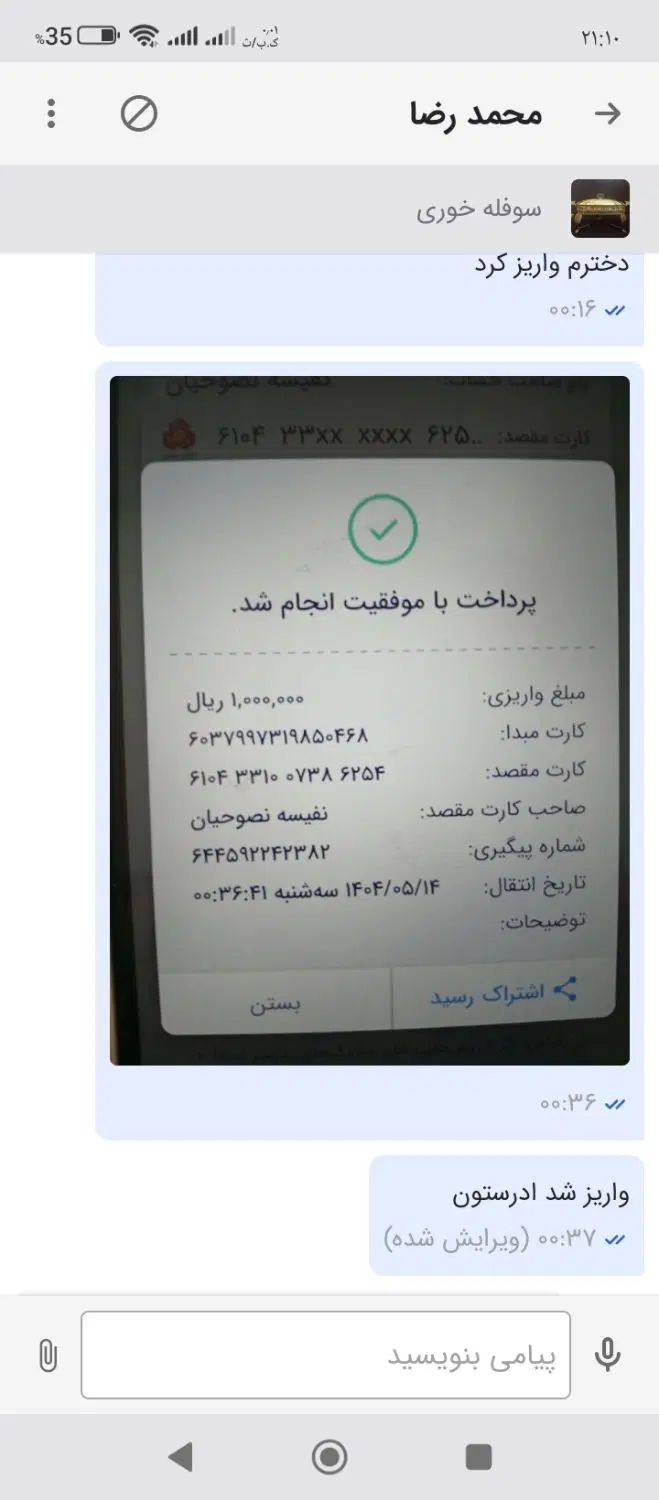 ۲۱:۱۰
۰٫۰۱
ک.ب/ث
%35
محمد رضا
سوفله خوری
دخترم واریز کرد
۰۰:۱۶
نفیسه نصوحیان
کارت مقصد: ۶۱۰۴ ۳۳XX XXXX ۶۲۵..
پرداخت با موفقیت انجام شد.
مبلغ واریزی: ۱,۰۰۰,۰۰۰ ریال
کارت مبدا: ۶۰۳۷۹۹۷۳۱۹۸۵۰۴۶۸
کارت مقصد: ۶۱۰۴ ۳۳۱۰ ۰۷۳۸ ۶۲۵۴
صاحب کارت مقصد: نفیسه نصوحیان
شماره پیگیری: ۶۴۴۵۹۲۲۴۲۳۸۲
تاریخ انتقال: ۱۴۰۴/۰۵/۱۴ سه‌شنبه ۰۰:۳۶:۴۱
توضیحات:
اشتراک رسید
بستن
۰۰:۳۶
واریز شد ادرستون
۰۰:۳۷ (ویرایش شده)
پیامی بنویسید